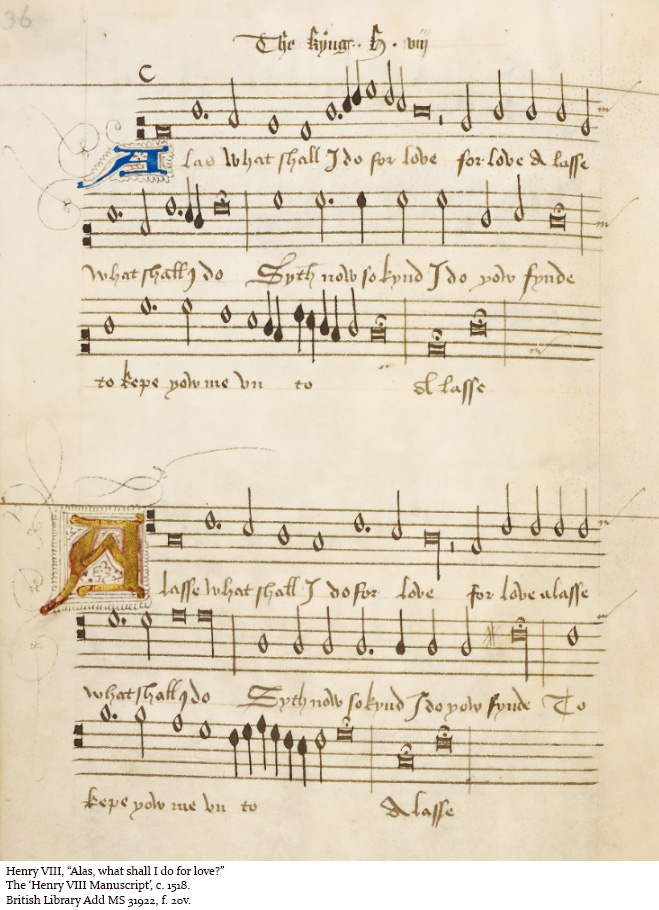 36
The kyng .. H . viij
C
A las what shall I do for love for love A lasse
what shall I do Syth now so kynd I do yow fynde
to kepe yow me vn to A lasse
A lasse what shall I do for love for love alasse
what shall I do Syth now so kynd I do yow fynde To
kepe yow me vn to A lasse
Henry VIII, “Alas, what shall I do for love?”
The ‘Henry VIII Manuscript’, c. 1518.
British Library Add MS 31922, f. 20v.